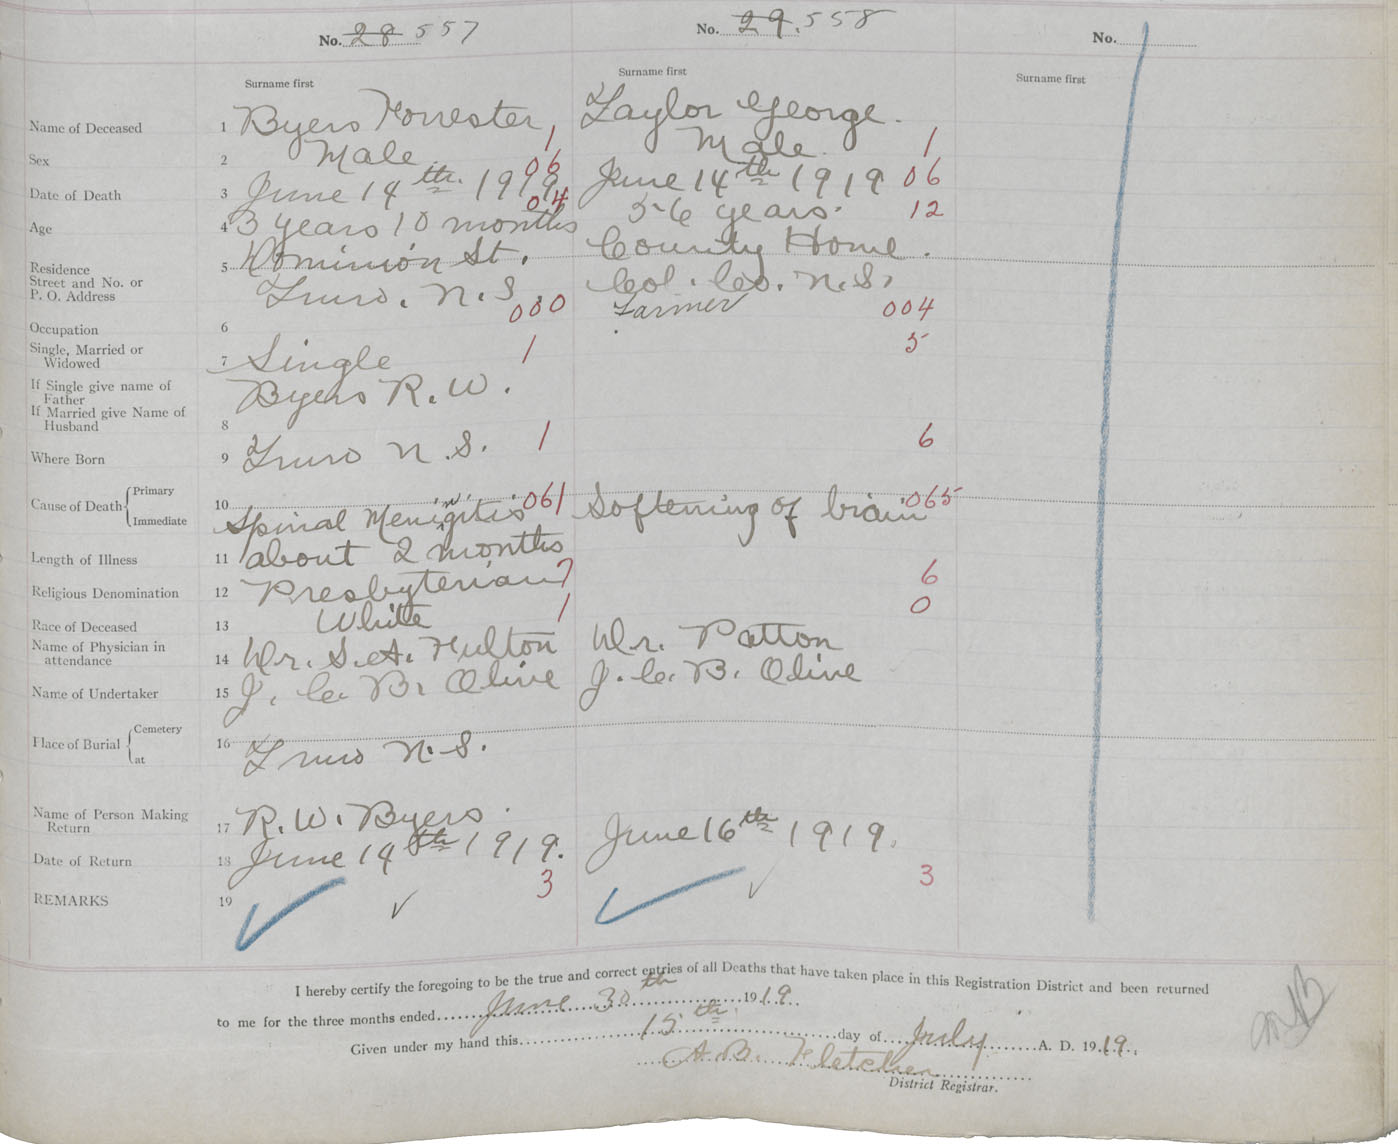 No. 28 557
No. 29. 558
No.
Surname first
Surname first
Surname first
Name of Deceased 1 Byers Forrester, Taylor George.
Sex 2 Male. 1 Male. 1
Date of Death 3 June 14th. 1919 06 June 14th 1919 06
Age 4 3 years 10 months 04 56 years. 12
Residence
Street and No. or
P. O. Address
5 Dominion St. County Home.
Truro. N. S. Col. Co. N. S.
Occupation 6 000 Farmer 004
Single, Married or
Widowed
7 Single 1 5
If Single give name of
Father
If Married give Name of
Husband
8 Byers R. W.
Where Born 9 Truro N. S. 1 6
Cause of Death Primary
Immediate
10 Spinal Menigitis n 061 Softening of brain 065
Length of Illness 11 about 2 months
Religious Denomination 12 Presbyterian 7 6
Race of Deceased 13 White 1 0
Name of Physician in
attendance
14 Dr. S. A. Fulton Dr. Patton
Name of Undertaker 15 J. C. B. Olive J. C. B. Olive
Place of Burial Cemetery
at
16 Truro N. S.
Name of Person Making
Return
17 R. W. Byers.
Date of Return 18 June 14th 1919. June 16th 1919.
REMARKS 19 3 3
I hereby certify the foregoing to be the true and correct entries of all Deaths that have taken place in this Registration District and been returned
to me for the three months ended June 30th 1919.
Given under my hand this 15th. day of July A. D. 1919.
A. B. Fletcher
District Registrar.